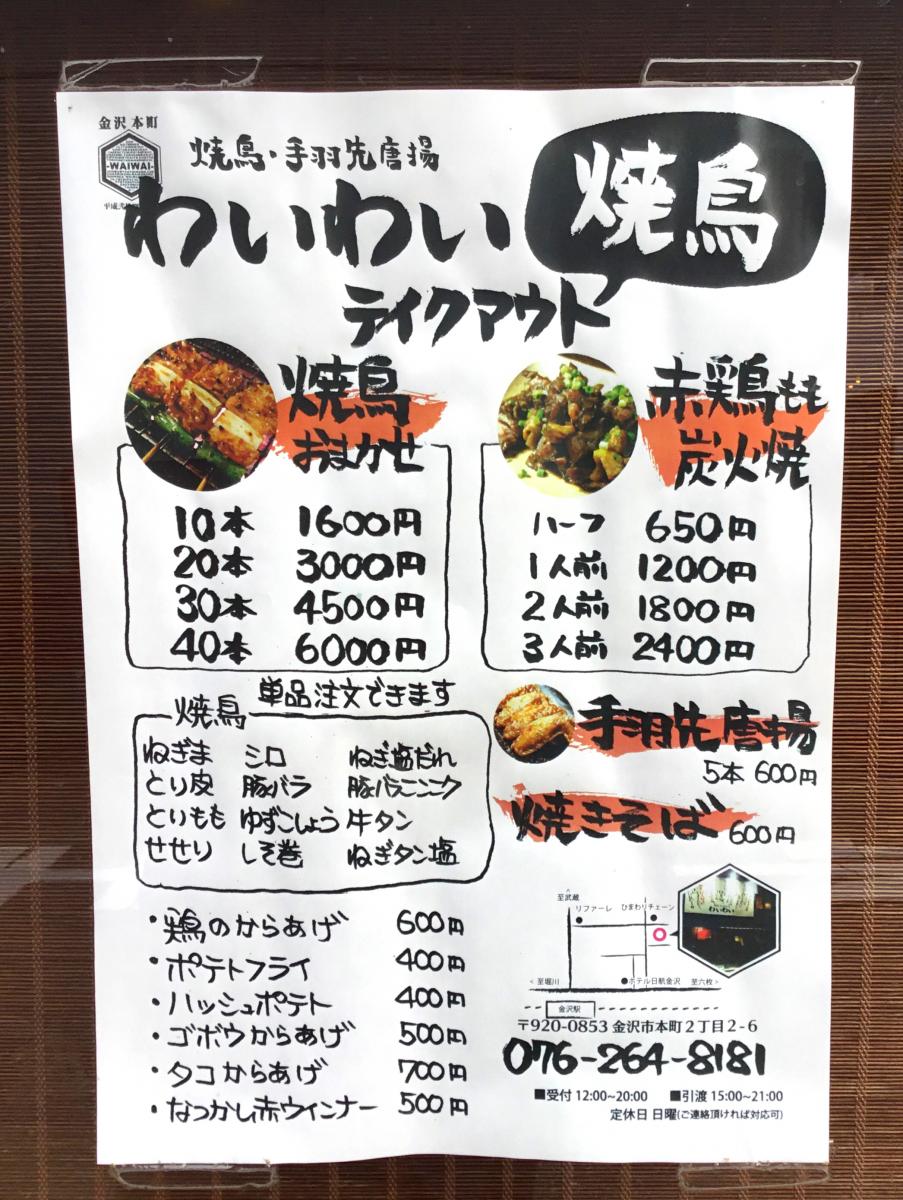 金沢 本町
-WAIWAI-
焼鳥・手羽先唐揚
わいわい
焼鳥
テイクアウト
焼鳥
おまかせ
10本 1600円
20本 3000円
30本 4500円
40本 6000円
赤鶏もも
炭火焼
ハーフ 650円
1人前 1200円
2人前 1800円
3人前 2400円
単品注文できます
焼鳥
ねぎま シロ ねぎ塩だれ
とり皮 豚バラ 豚バラニンニク
とりもも ゆずこしょう 牛タン
せせり しそ巻 ねぎタン塩
手羽先唐揚
5本 600円
焼きそば 600円
・鶏のからあげ 600円
・ポテトフライ 400円
・ハッシュポテト 400円
・ゴボウからあげ 500円
・タコからあげ 700円
・なつかし赤ウインナー 500円
至武蔵
リファーレ ひまわりチェーン
わいわい
<至堀川 ●ホテル日航金沢 至六枚>
金沢駅
〒920-0853 金沢市本町2丁目2-6
076-264-8181
■受付 12:00~20:00 ■引渡 15:00~21:00
定休日 日曜(ご連絡頂ければ対応可)